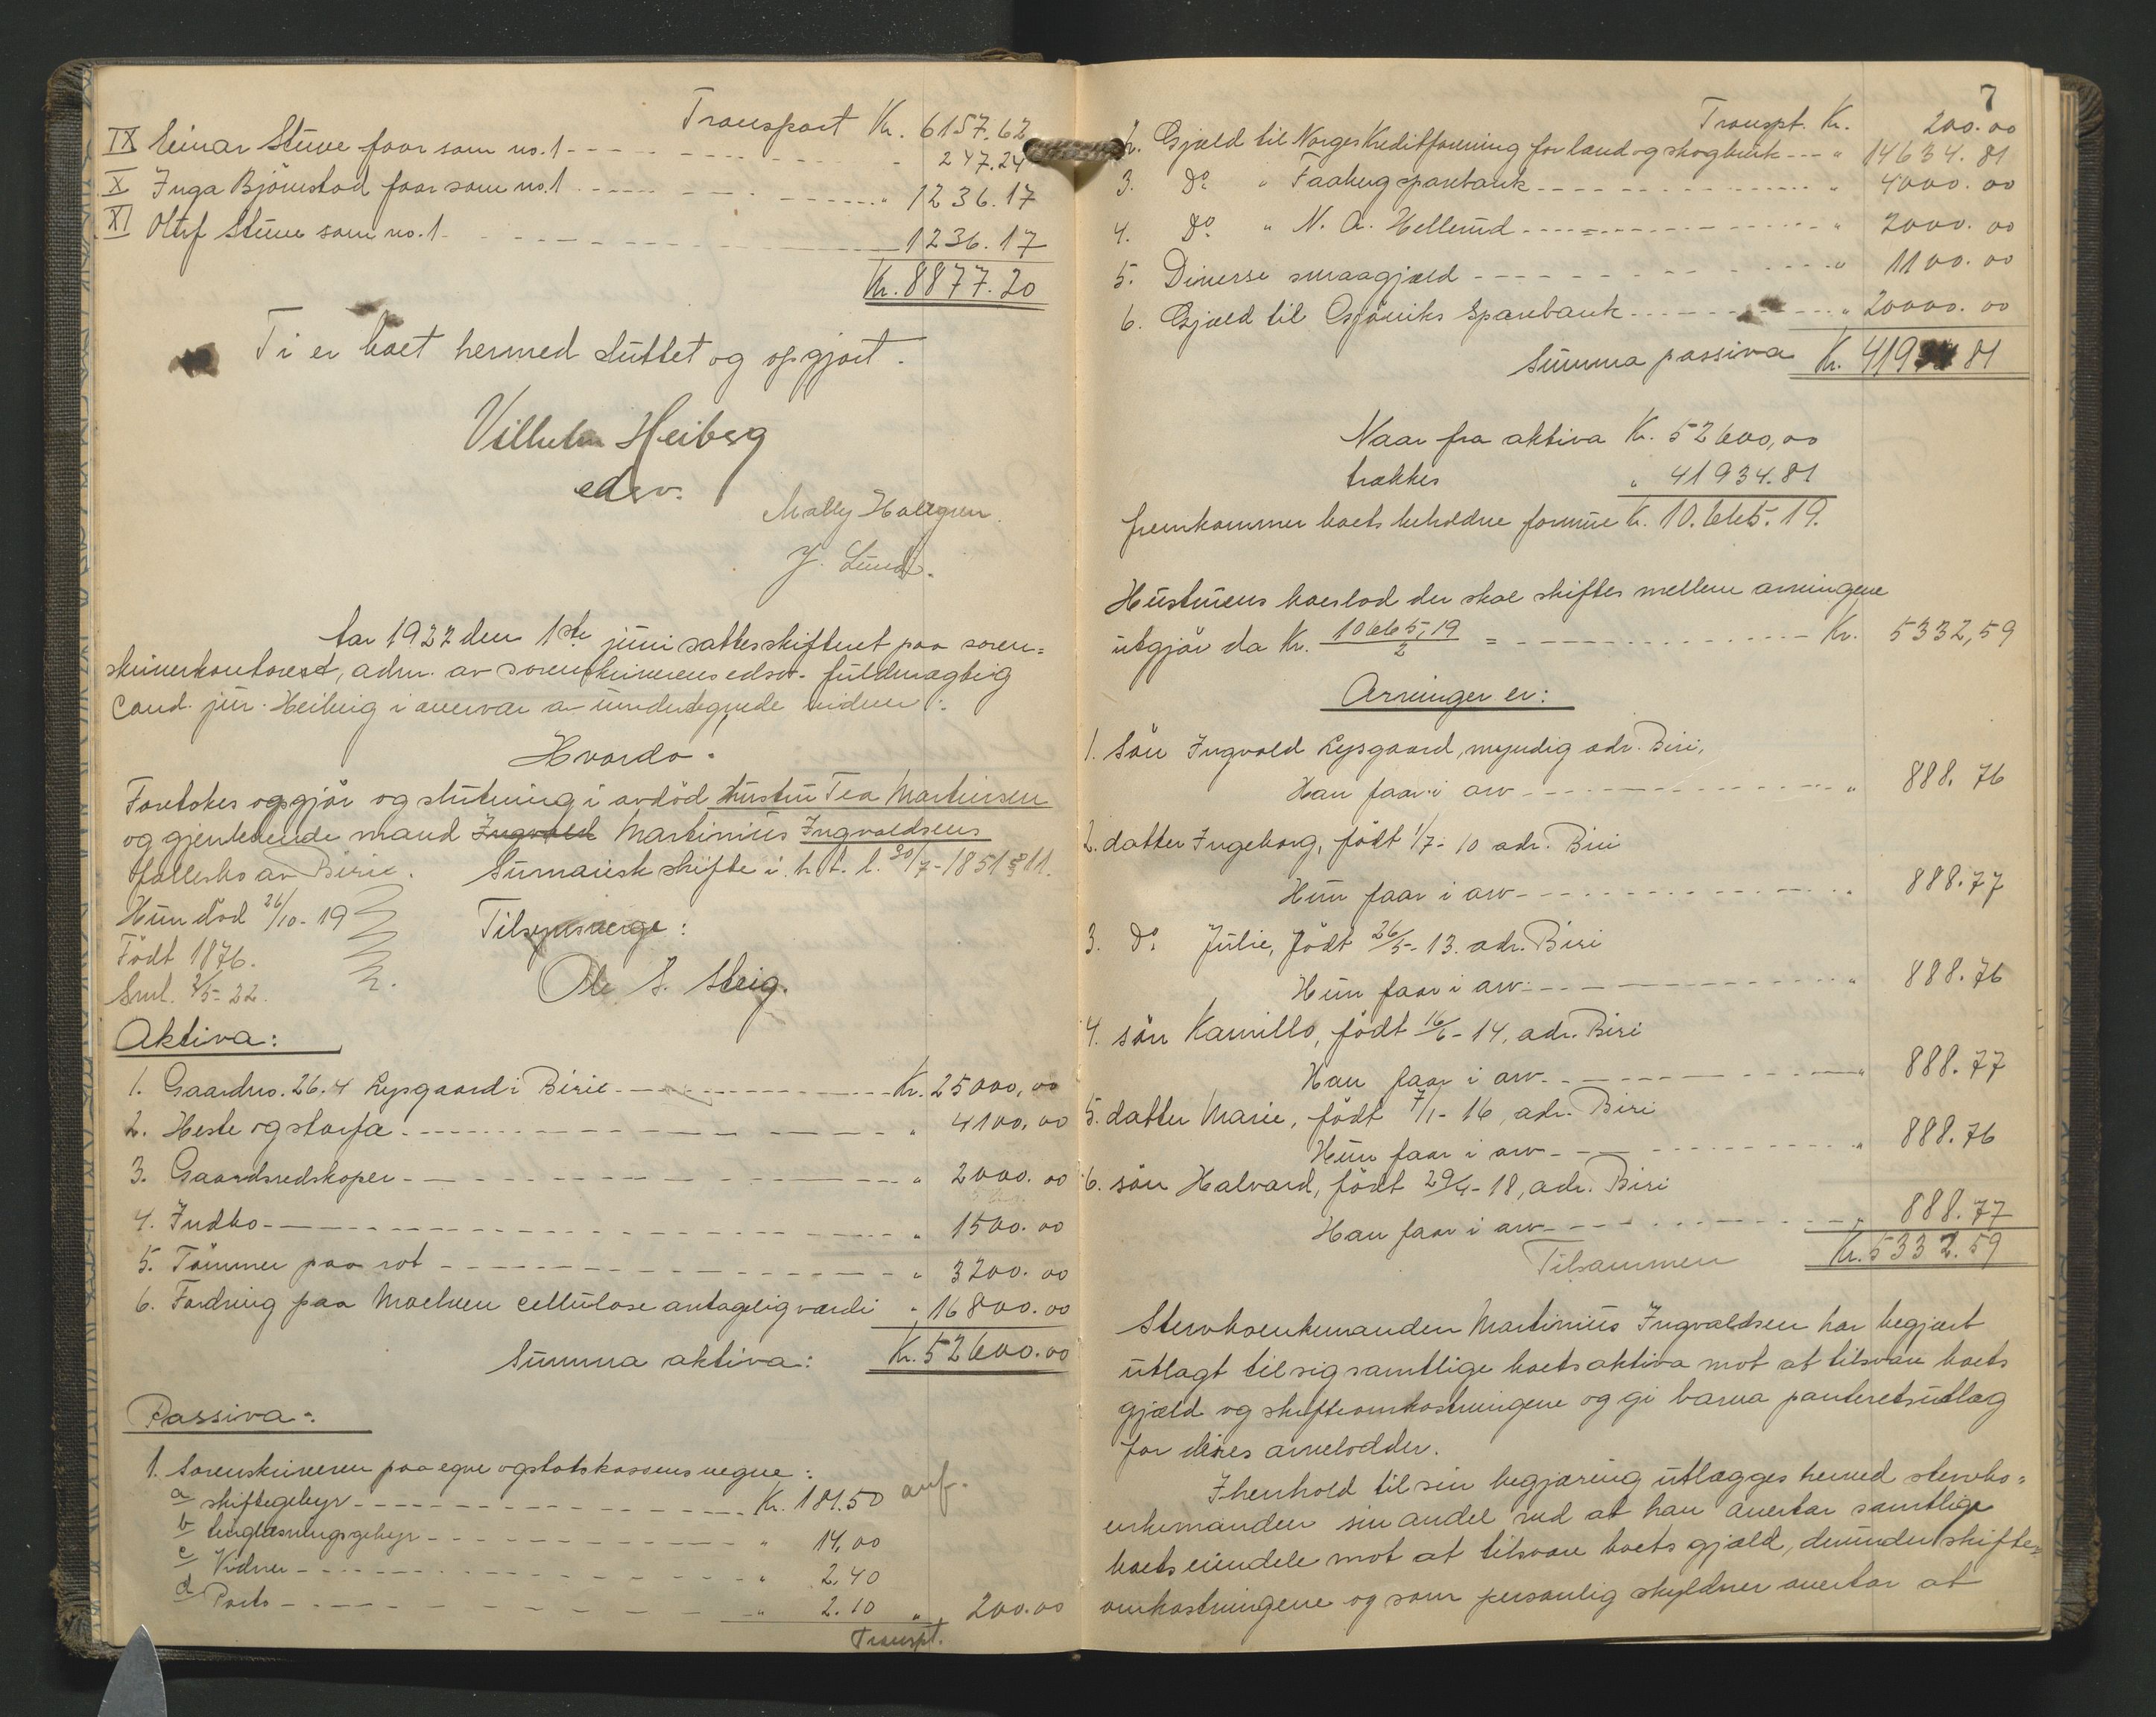 Transport Kr. 6157.62
IX Einar Stuve faar som no. 1 - - - " 247.24
X Inga Björnstad faar som no. 1 - - - " 1236.17
XI Oluf Stuve som no. 1 - - - 1236.17
Kr. 8877.20
Ti er boet hermed sluttet og opgjort.
Vilhelm Heiberg
edsv.
Mally Hallgren
J. Lund.
Aar 1922 den 1ste juni sattes skifteret paa soren=
skriverkontoret, adm. av sorenskriverens edsv. fuldmægtig
Cand. jur. Heiberg i overvær av undertegnede vidner:
Hvorda:
Foretokes opgjör og slutning i avdöd hustru Tea Martinsen
og gjenlevende mand Ingvald Martinius Ingvaldsens
fællesbo av Birie. Sumarisk skifte i. h. t. l. 30/7-1851 § 11.
Hun död 26/10-19
Födt 1876.
Sml. 2/5-22.
Tilsynsverge:
Ole S. Steig.
Aktiva:
1. Gaardno. 26.4 Lysgaard i Birie - - - Kr. 25000,00
2. Heste og storfæ - - - " 4100,00
3. Gaardsredskaper - - - " 2000.00
4. Indbo - - - " 1500.00
5. Tömmer paa rot - - - " 3200.00
6. Fordring paa Moelven cellulose antagelig værdi " 16800.00
Summa aktiva: Kr. 52600.00
Passiva:
1. Sorenskriveren paa egne og statskassens vegne:
a skiftegebyr - - - Kr. 181.50 anf.
b tinglæsningsgebyr - - - " 14,00
c Vidner - - - " 2.40
d Porto - - - " 2.10 " 200.00
Transpt.
7
Transpt. Kr. 200.00
2. Gjæld til Norges Kreditforening for land og skogbruk - - - " 14634.81
3. do " Faaberg sparebank - - - " 4000.00
4. do " N. A. Hellerud - - - " 2000.00
5. Diverse smaagjæld - - - " 1100.00
6. Gjæld til Gjöviks Sparebank - - - " 20000.00
Summa passiva Kr. 41934 81
Naar fra aktiva Kr. 52600,00
trækkes " 41934.81
fremkommer boets beholdne formue Kr. 10.665.19.
Hustruens boeslod der skal skiftes mellem arvingene
utgjör da Kr. 10665,19/2 = - - - Kr. 5332,59
Arvinger er:
1. Sön Ingvald Lysgaard, myndig adr. Biri,
Han faar i arv - - - " 888.76
2. datter Ingeborg, födt 1/7-10 adr. Biri
Hun faar i arv - - - " 888.77
3. do Julie, födt 26/5-13. adr. Biri
Hun faar i arv - - - " 888.76
4. sön Kamillo, födt 16/6-14, adr. Biri
Han faar i arv - - - " 888.77
5. datter Marie, födt 7/1-16, adr. Biri
Hun faar i arv - - - " 888.76
6. sön Halvard, födt 29/4-18, adr. Biri
Han faar i arv - - - " 888.77
Tilsammen Kr. 5332.59
Stervboenkemanden Martinius Ingvaldsen har begjært
utlagt til sig samtlige boets aktiva mot at tilsvare boets
gjæld og skifteomkostningene og gi barna panteretsutlæg
for deres arvelodder.
I henhold til sin begjæring utlægges herved stervbo=
enkemanden sin andel ved at han overtar samtlige
boets eiendele mot at tilsvare boets gjæld, derunder skifte=
omkostningene og som personlig skyldner overtar at